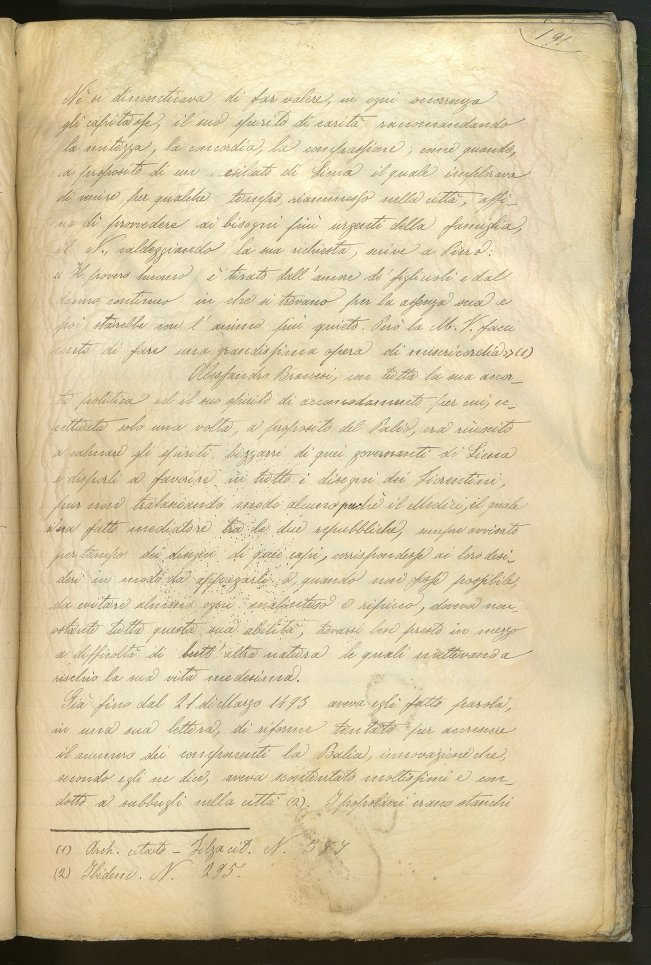 191
Nè si dimenticava di far valere, in ogni occorrenza
gli capitasse, il suo spirito di carità raccomandando
la mitezza, la concordia, la compassione; come quando,
a proposito di un esiliato di Siena il quale implorava
di venire, per qualche tempo, riammesso nella città, affi-
ne di provvedere ai bisogni più urgenti della famiglia,
il N., caldeggiando la sua richiesta, scrive a Piero:
« Il povero huomo è tirato dall'amore di figliuoli e dal
danno continuo in che si trovano per la assenza sua e
poi starebbe con l'animo più quieto. Però la M. V. facci
conto di fare una grandissima opera di misericordia » (1)
Alessandro Braccesi, con tutta la sua accor-
ta politica ed il suo spirito di accomodamento per cui, ec-
cettuata solo una volta, a proposito del Palio, era riuscito
a calmare gli spiriti bizzarri di quei governanti di Siena
e disporli a favorire in tutto i disegni dei Fiorentini,
pur non tralasciando modo alcuno perchè il Medici, il quale
s'era fatto mediatore tra le due repubbliche, sempre avvisato
per tempo dei disegni di quei capi, corrispondesse ai loro desi-
deri in modo da appagarli o quando non fosse possibile,
da evitare almeno ogni malinteso e ripicco, doveva non
ostante tutta questa sua abilità, trovarsi ben presto in mezzo
a difficoltà di tutt'altra natura le quali mettevan a
rischio la sua vita medesima.
Già fino dal 21 di Marzo 1493 aveva egli fatto parola,
in una sua lettera, di riforme tentate per accrescere
il numero dei componenti la Balìa, innovazione che,
secondo egli ne dice, aveva scontentato moltissimi e con-
dotto a subbugli nella città (2). I popolani erano stanchi
(1) Arch. citato - Filza cit. N.
(2) Ibidem. N. 295.